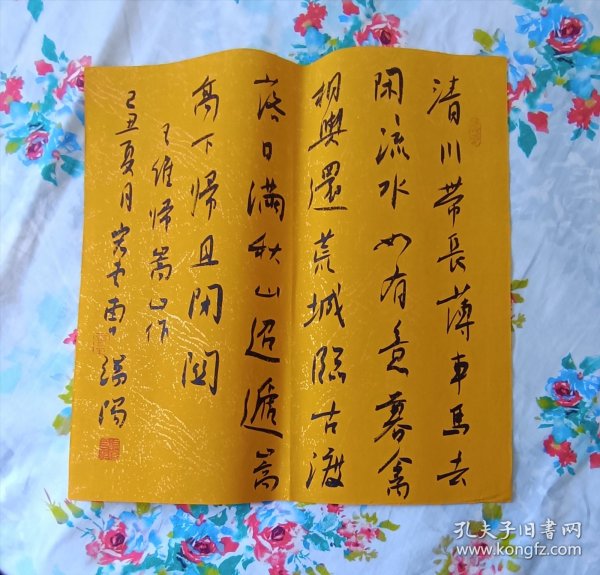 清川帶長薄車馬去
閑流水如有意暮禽
相與還荒城臨古渡
落日滿秋山迢遞嵩
高下帰且閉関
王維帰嵩山作
己丑夏月
孔夫子旧书网
www.kongfz.com